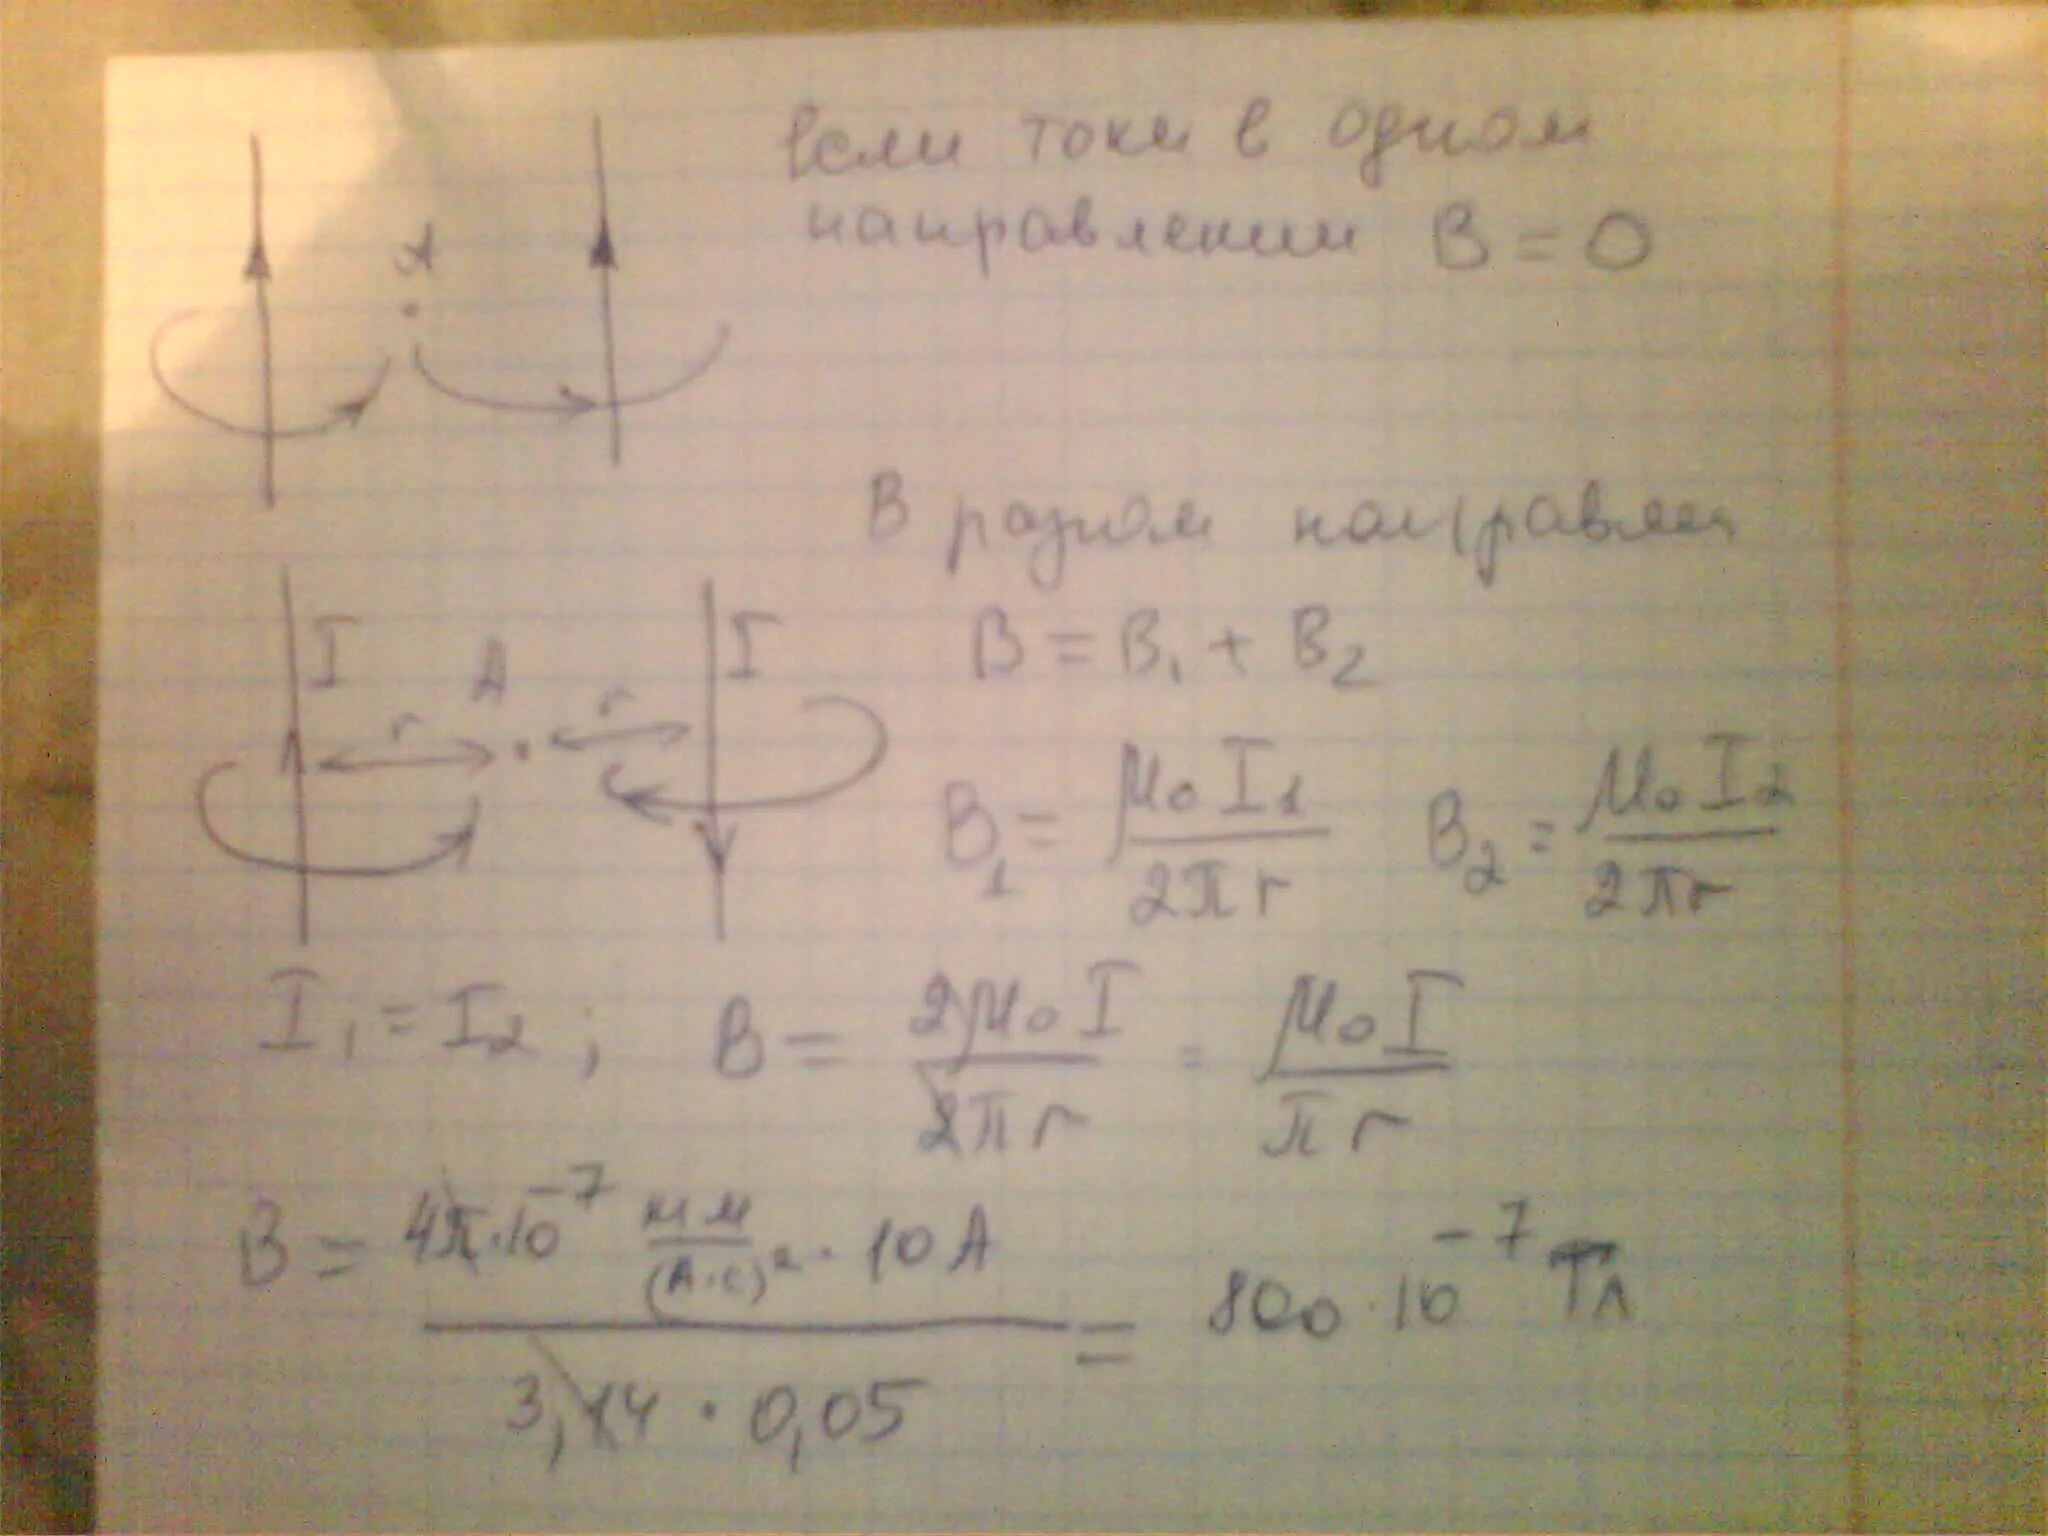 Если токи в одном
направлении B = 0
A
В разном направлен
I A I
r r
B = B₁ + B₂
B₁ = μ₀I₁/2πr B₂ = μ₀I₂/2πr
I₁ = I₂ ; B = 2μ₀I/2πr = μ₀I/πr
B = 4π·10⁻⁷ · 10 A / 3,14 · 0,05 = 800·10⁻⁷ Тл